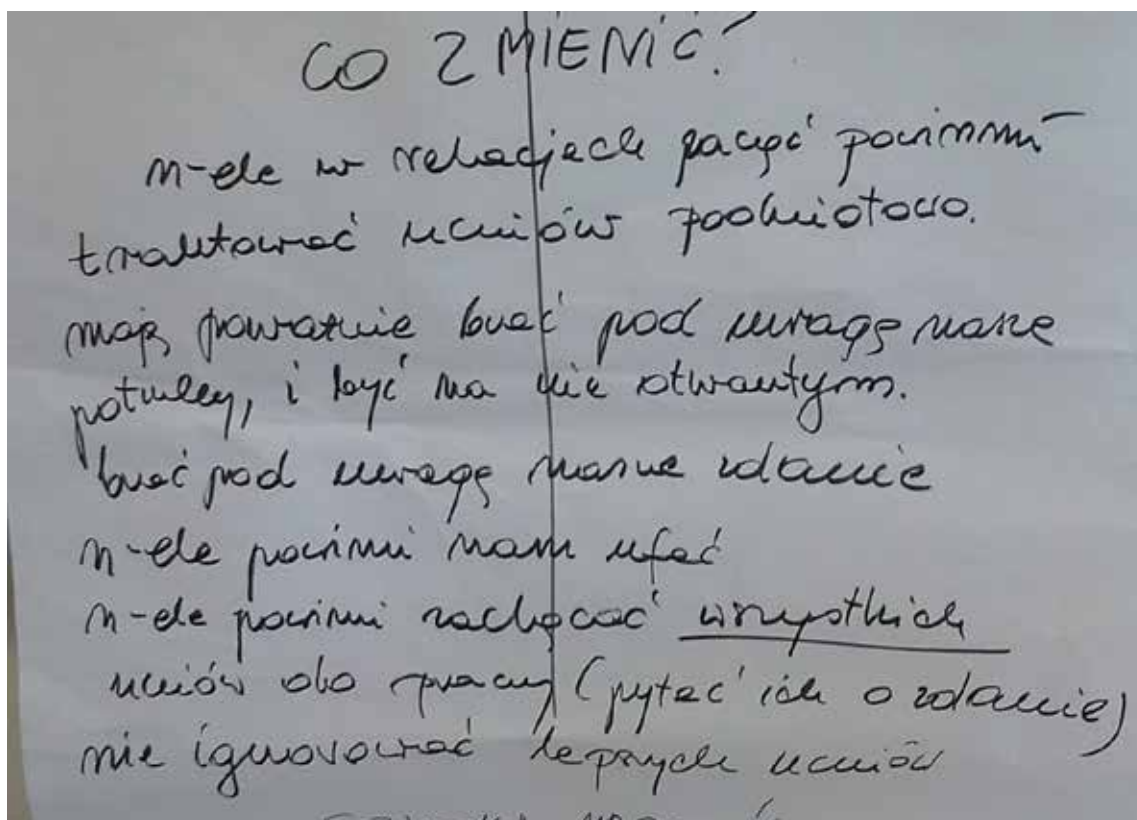 CO ZMIENIĆ?
n-ele w relacjach zacząć powinni
traktować uczniów podmiotowo.
mają poważnie brać pod uwagę nasze
potrzeby, i być na nie otwartym.
brać pod uwagę nasze zdanie
n-ele powinni nam ufać
n-ele powinni zachęcać wszystkich
uczniów do pracy (pytać ich o zdanie)
nie ignorować lepszych uczniów